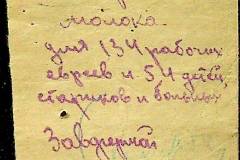 молока
для 134 рабочих
евреев и 54 детей,
стариков и больных
Завфермой